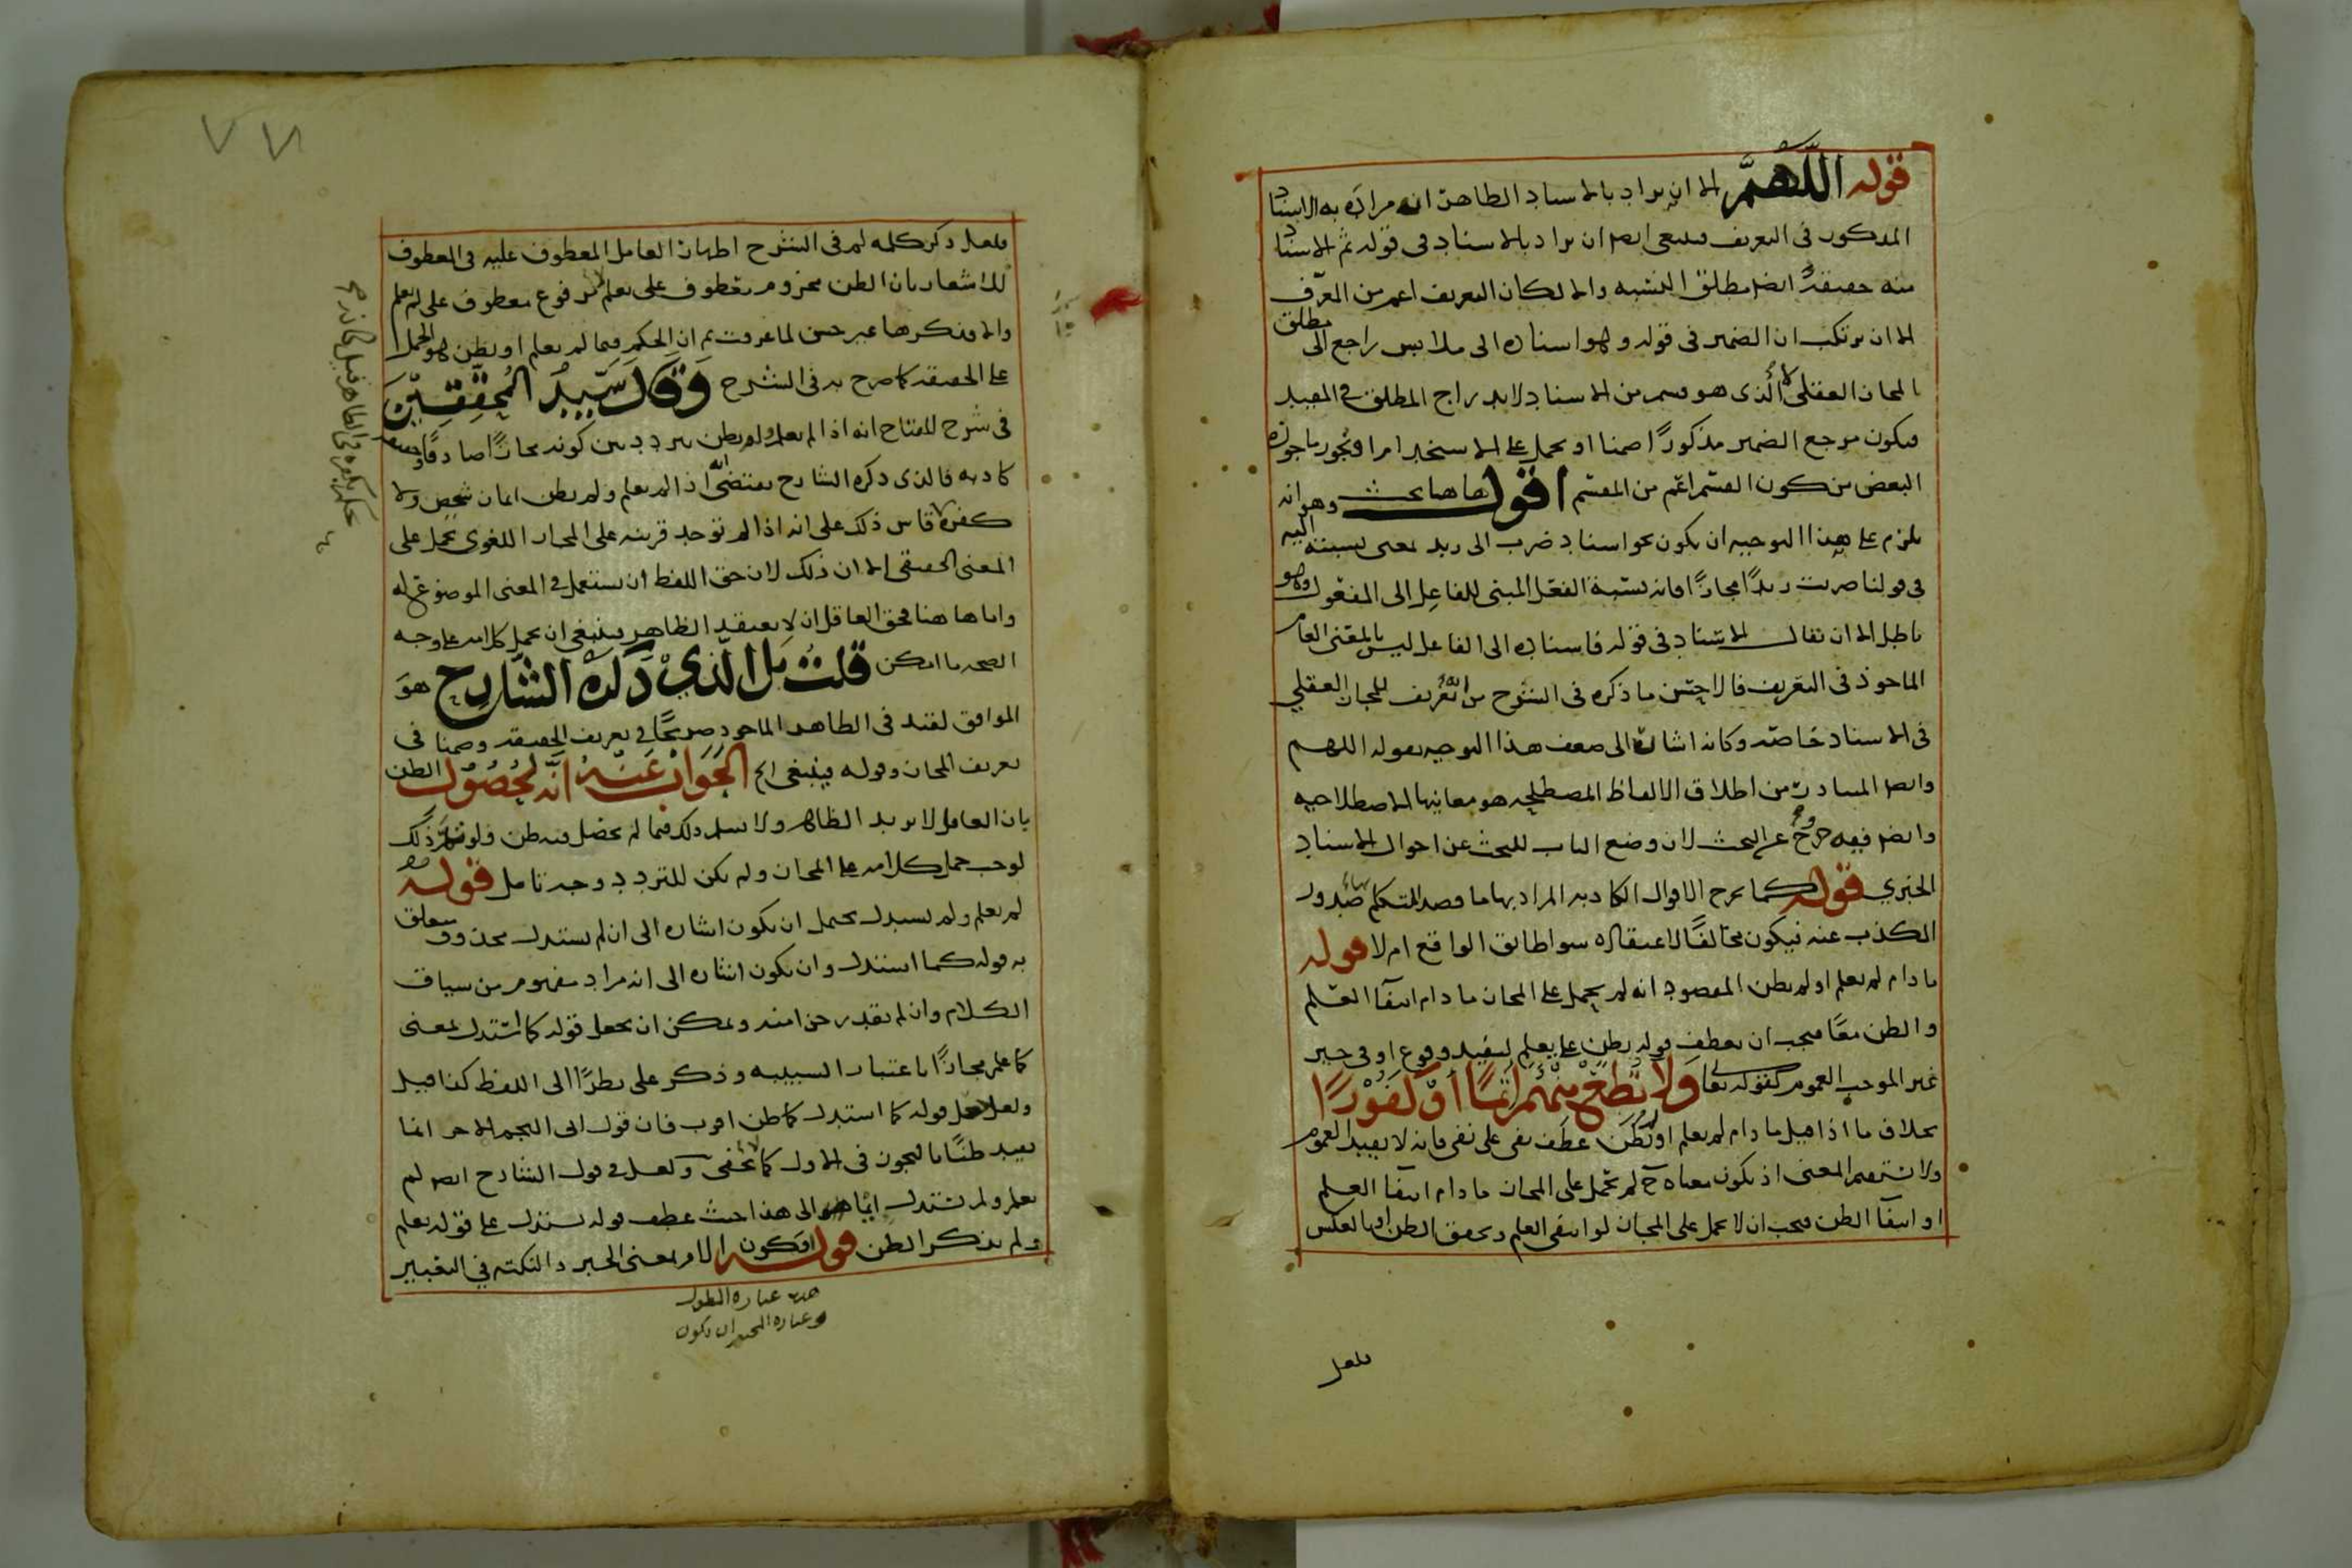 قوله اللهم الا ان يراد بالاسناد الظاهر انه مراده به الاسناد
المذكور في التعريف فينبغي ايضا ان يراد بالاسناد في قوله ثم الاسناد
منه حقيقة ايضا مطلق النسبه والا لكان التعريف اعم من المعرف
الا ان يرتكب ان الضمير في قوله وهو اسناده الى ملابس راجع الى مطلق
المجاز العقلي لا الذي هو قسم من الاسناد لاندراج المطلق في المقيد
فيكون مرجع الضمير مذكورا ضمنا او يحمل على الاستخدام او تجوز ما جوزه
البعض من كون القسم اعم من المقسم اقول هاهنا بحث وهو انه
يلزم على هذا التوجيه ان يكون نحو اسناد ضرب الى زيد بمعنى نسبته اليه
في قولنا ضربت زيدا مجازا فانه نسبة الفعل المبني للفاعل الى المفعول وهو
باطل الا ان يقال الاسناد في قوله فاسناده الى الفاعل ليس بالمعنى العام
الماخوذ في التعريف فالاحسن ما ذكره في الشرح من ان التعريف للمجاز العقلي
في الاسناد خاصه وكانه اشارة الى ضعف هذا التوجيه بقوله اللهم
وايضا المتبادر من اطلاق الالفاظ المصطلحه هو معانيها الاصطلاحيه
وايضا فيه خروج عن البحث لان وضع الباب للبحث عن احوال الاسناد
الخبري قوله كما يخرج الاقوال الكاذبه المراد بها ما قصد المتكلم بها صدور
الكذب عنه فيكون مخالفا لاعتقاده سوا طابق الواقع ام لا قوله
ما دام لم يعلم او لم يظن المقصود انه لم يحمل على المجاز ما دام انتفا العلم
والظن معا فيجب ان يعطف قوله يظن على يعلم ليفيد وقوع او في حيز
غير الموجب العموم كقوله تعالى ولا تطع منهم اثما او كفورا
بخلاف ما اذا قيل ما دام لم يعلم او لم يظن عطف نفي على نفي فانه لا يفيد العموم
ولا يستقيم المعنى اذ يكون معناه ح لم يحمل على المجاز ما دام انتفا العلم
او انتفا الظن فيجب ان لا يحمل على المجاز لو انتفى العلم وتحقق الظن او بالعكس
فلعل
فلعل ذكر كلمه لم في الشرح اظهار العامل المعطوف عليه في المعطوف
للاشعار بان الظن مجزوم معطوف على يعلم لا مرفوع معطوف على لم يعلم
والا فذكرها غير حسن لما عرفت ثم ان الحكم فيما لم يعلم او يظن هو الحمل
على الحقيقه كما صرح به في الشرح وقال سيد المحققين
في شرح المفتاح انه اذا لم يعلم ولم يظن يتردد بين كونه مجازا صادقا وحقيقه
كاذبه فالذي ذكره الشارح يقتضي انه اذا لم يعلم ولم يظن ايمان شخص ولا
كفره قاس ذلك على انه اذا لم توجد قرينه على المجاز اللغوي يحمل على
المعنى الحقيقي الا ان ذلك لان حق اللفظ ان يستعمل في المعنى الموضوع له
واما هاهنا فحق العاقل ان لا يعتقد الظاهر فينبغي ان يحمل كلامه على وجه
الصحه ما امكن قلت بل الذي ذكره الشارح هو
الموافق لقيد في الظاهر الماخوذ صريحا في تعريف الحقيقه وضمنا في
تعريف المجاز وقوله فينبغي الخ الجواب عنه انه لحصول الظن
بان العاقل لا يريد الظاهر ولا نسلم ذلك فيما لم يحصل فيه ظن ولو سلم ذلك
لوجب حمل كلامه على المجاز ولم يكن للتردد وجه تامل قوله
لم يعلم ولم يستدل يحتمل ان يكون اشاره الى ان لم يستدل محذوف ويتعلق
به قوله كما استدل وان يكون اشاره الى انه مراد مفهوم من سياق
الكلام وان لم يقدر جزا منه ويمكن ان يجعل قوله كما استدل بمعنى
كما علم مجازا باعتبار السببيه وذكر على نظرا الى اللفظ كذا قيل
ولعل جعل قوله كما استدل كما ظن اقرب فان قول ابي النجم الاخر انما
يفيد ظنا بالتجوز في الاول كما لا يخفى ولعل في قول الشارح ايضا لم
يعلم ولم يستدل ايما الى هذا حيث عطف قوله يستدل على قوله يعلم
ولم يذكر الظن قوله او يكون الامر بمعنى الخبر والنكته في التعبير
هذه عباره المطول
وعباره المختصر ان يكون